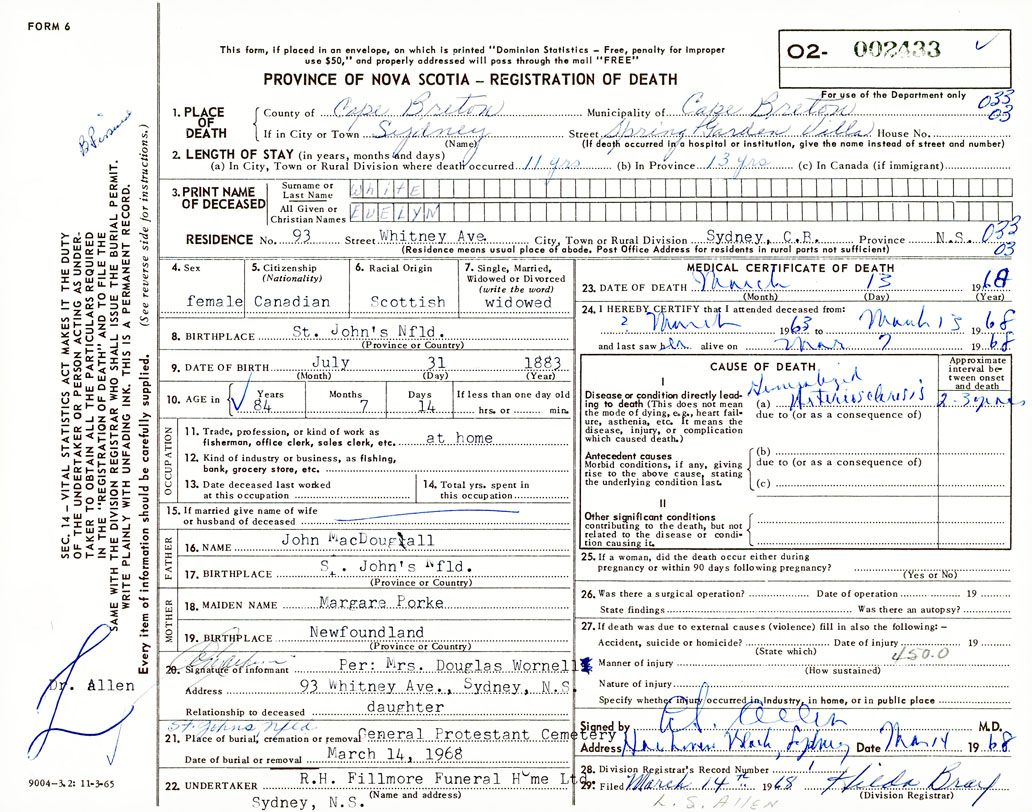 FORM 6
This form, if placed in an envelope, on which is printed "Dominion Statistics – Free, penalty for improper
use $50," and properly addressed will pass through the mail "FREE"
PROVINCE OF NOVA SCOTIA – REGISTRATION OF DEATH
02- 002433
For use of the Department only
033
03
1. PLACE OF DEATH
County of Cape Breton Municipality of Cape Breton
If in City or Town Sydney Street Spring Garden Villa House No.
(Name) (If death occurred in a hospital or institution, give the name instead of street and number)
2. LENGTH OF STAY (in years, months and days)
(a) In City, Town or Rural Division where death occurred 11 yrs (b) In Province 13 yrs (c) In Canada (if immigrant)
3. PRINT NAME OF DECEASED
Surname or Last Name WHITE
All Given or Christian Names EVELYN
RESIDENCE No. 93 Street Whitney Ave. City, Town or Rural Division Sydney, C.B. Province N.S. 033
(Residence means usual place of abode. Post Office Address for residents in rural parts not sufficient) 03
4. Sex
female
5. Citizenship
(Nationality)
Canadian
6. Racial Origin
Scottish
7. Single, Married,
Widowed or Divorced
(write the word)
widowed
8. BIRTHPLACE St. John's Nfld.
(Province or Country)
9. DATE OF BIRTH July 31 1883
(Month) (Day) (Year)
10. AGE in Years Months Days If less than one day old
84 7 14 hrs. or min.
OCCUPATION
11. Trade, profession, or kind of work as
fisherman, office clerk, sales clerk, etc. at home
12. Kind of industry or business, as fishing,
bank, grocery store, etc.
13. Date deceased last worked
at this occupation
14. Total yrs. spent in
this occupation
15. If married give name of wife
or husband of deceased
FATHER
16. NAME John MacDougall
17. BIRTHPLACE S. John's Nfld.
(Province or Country)
MOTHER
18. MAIDEN NAME Margare Porke
19. BIRTHPLACE Newfoundland
(Province or Country)
20. Signature of informant Per: Mrs. Douglas Wornell
Address 93 Whitney Ave., Sydney, N.S.
Relationship to deceased daughter
St. Johns Nfld
21. Place of burial, cremation or removal General Protestant Cemetery
22. Date of burial or removal March 14, 1968
22. UNDERTAKER R.H. Fillmore Funeral Home Ltd.
(Name and address)
Sydney, N.S.
MEDICAL CERTIFICATE OF DEATH
23. DATE OF DEATH March 13 1968
(Month) (Day) (Year)
24. I HEREBY CERTIFY that I attended deceased from:
2 March 1963 to March 13 1968
and last saw her alive on Mar 7 1968
CAUSE OF DEATH
Approximate
interval be-
tween onset
and death
I
Disease or condition directly lead-
ing to death (This does not mean
the mode of dying, e.g., heart fail-
ure, asthenia, etc. It means the
disease, injury, or complication
which caused death.)
Generalized
(a) Arteriosclerosis 2-3 years
due to (or as a consequence of)
Antecedent causes
Morbid conditions, if any, giving
rise to the above cause, stating
the underlying condition last.
(b)
due to (or as a consequence of)
(c)
II
Other significant conditions
contributing to the death, but not
related to the disease or condi-
tion causing it.
25. If a woman, did the death occur either during
pregnancy or within 90 days following pregnancy?
(Yes or No)
26. Was there a surgical operation? Date of operation 19
State findings Was there an autopsy?
27. If death was due to external causes (violence) fill in also the following:–
Accident, suicide or homicide? Date of injury 19
(State which) 450.0
Manner of injury
(How sustained)
Nature of injury
Specify whether injury occurred in industry, in home, or in public place
Signed by Allen M.D.
Address Sydney Date Mar 14 1968
28. Division Registrar's Record Number
29. Filed March 14th 1968 Hilda Bray
(Division Registrar)
L.S. ALLEN
SEC. 14 – VITAL STATISTICS ACT MAKES IT THE DUTY
OF THE UNDERTAKER OR PERSON ACTING AS UNDER-
TAKER TO OBTAIN ALL THE PARTICULARS REQUIRED
IN THE "REGISTRATION OF DEATH" AND TO FILE THE
SAME WITH THE DIVISION REGISTRAR WHO SHALL ISSUE THE BURIAL PERMIT.
WRITE PLAINLY WITH UNFADING INK. THIS IS A PERMANENT RECORD.
Every item of information should be carefully supplied. (See reverse side for instructions.)
Dr. Allen
9004-3.2: 11-3-65